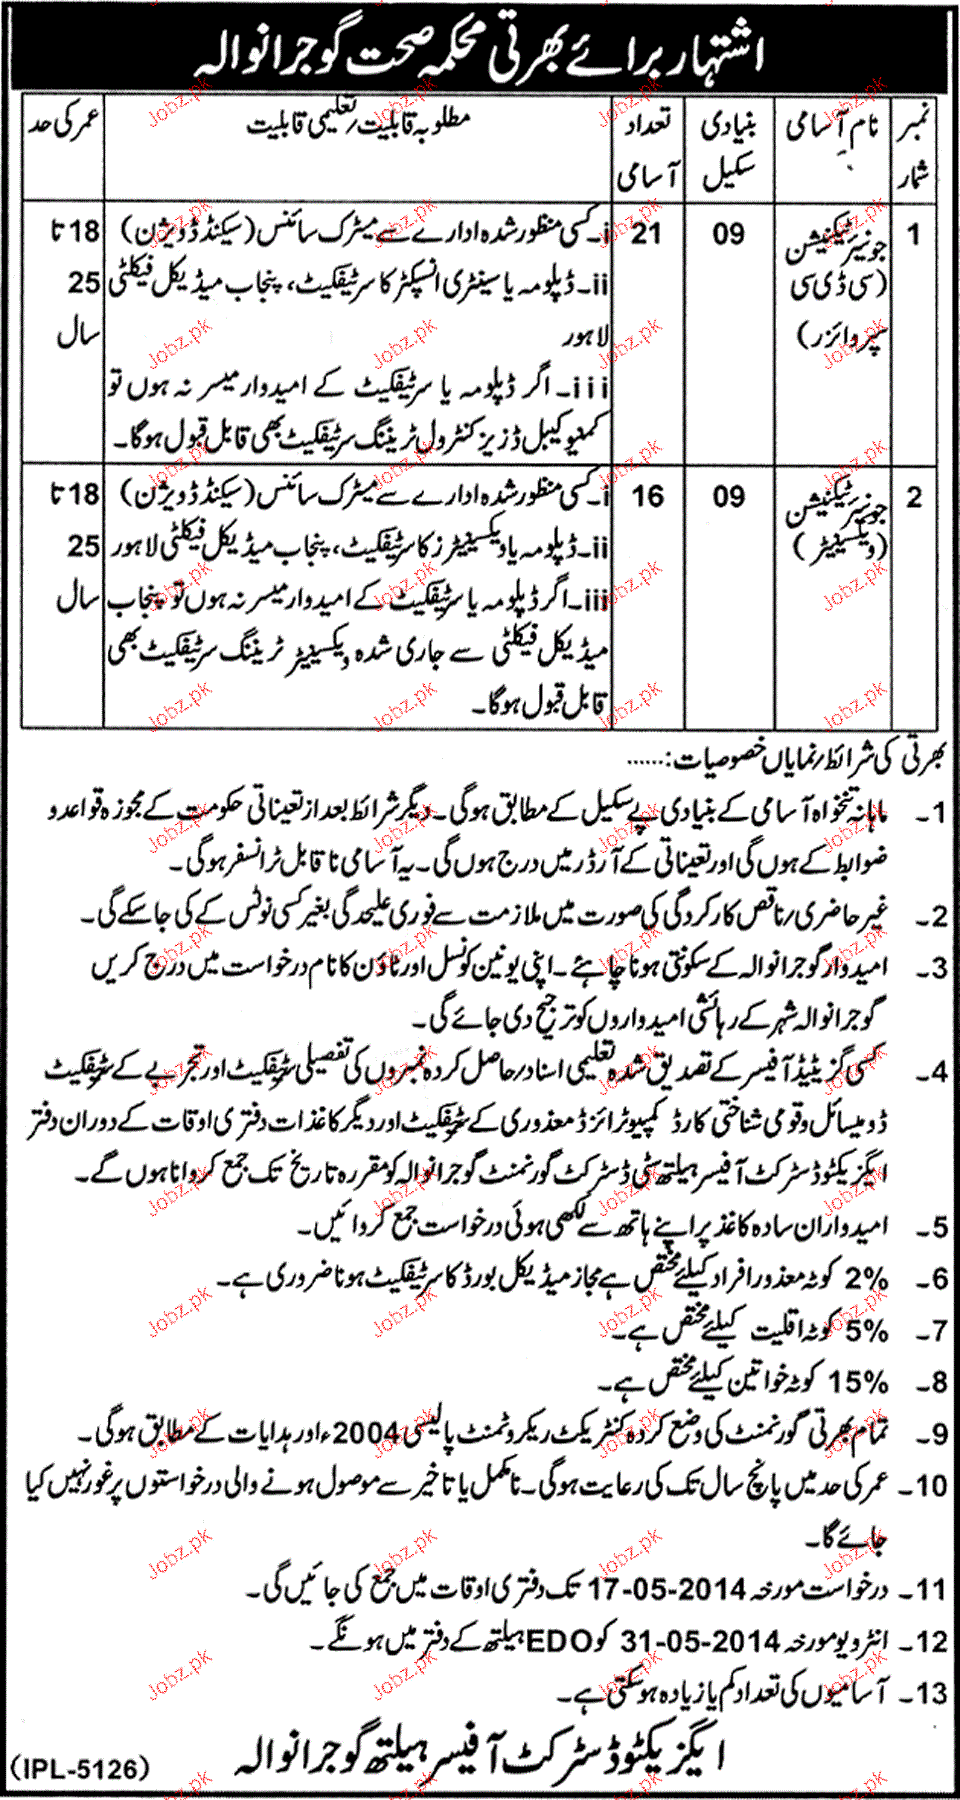 اشتہار برائے بھرتی محکمہ صحت گوجرانوالہ
نمبر شمار
نام آسامی
بنیادی سکیل
تعداد آسامی
مطلوبہ قابلیت/تعلیمی قابلیت
عمر کی حد
1
جونیئر ٹیکنیشن
(سی ڈی سی
سپروائزر)
09
21
i۔ کسی منظور شدہ ادارے سے میٹرک سائنس (سیکنڈ ڈویژن)
ii۔ ڈپلومہ یا سینٹری انسپکٹر کا سرٹیفکیٹ، پنجاب میڈیکل فیکلٹی
لاہور
iii۔ اگر ڈپلومہ یا سرٹیفکیٹ کے امیدوار میسر نہ ہوں تو
کمیونیکیبل ڈزیز کنٹرول ٹریننگ سرٹیفکیٹ بھی قابل قبول ہوگا۔
18 تا
25
سال
2
جونیئر ٹیکنیشن
(ویکسینیٹر)
09
16
i۔ کسی منظور شدہ ادارے سے میٹرک سائنس (سیکنڈ ڈویژن)
ii۔ ڈپلومہ یا ویکسینیٹرز کا سرٹیفکیٹ، پنجاب میڈیکل فیکلٹی لاہور
iii۔ اگر ڈپلومہ یا سرٹیفکیٹ کے امیدوار میسر نہ ہوں تو پنجاب
میڈیکل فیکلٹی سے جاری شدہ ویکسینیٹر ٹریننگ سرٹیفکیٹ بھی
قابل قبول ہوگا۔
18 تا
25
سال
بھرتی کی شرائط/نمایاں خصوصیات:......
1۔ ماہانہ تنخواہ آسامی کے بنیادی پے سکیل کے مطابق ہوگی۔ دیگر شرائط بعد از تعیناتی حکومت کے مجوزہ قواعد و
ضوابط کے ہوں گی اور تعیناتی کے آرڈر میں درج ہوں گی۔ یہ آسامی ناقابل ٹرانسفر ہوگی۔
2۔ غیر حاضری/ناقص کارکردگی کی صورت میں ملازمت سے فوری علیحدگی بغیر کسی نوٹس کے کی جاسکے گی۔
3۔ امیدوار گوجرانوالہ کے سکونتی ہونا چاہئے۔ اپنی یونین کونسل اور ٹاؤن کا نام درخواست میں درج کریں
گوجرانوالہ شہر کے رہائشی امیدواروں کو ترجیح دی جائے گی۔
4۔ کسی گزیٹیڈ آفیسر کے تصدیق شدہ تعلیمی اسناد/حاصل کردہ نمبروں کی تفصیلی سرٹیفکیٹ اور تجربے کے سرٹیفکیٹ
ڈومیسائل و قومی شناختی کارڈ کمپیوٹرائزڈ معذوری کے سرٹیفکیٹ اور دیگر کاغذات دفتری اوقات کے دوران دفتر
ایگزیکٹو ڈسٹرکٹ آفیسر ہیلتھ سٹی ڈسٹرکٹ گورنمنٹ گوجرانوالہ کو مقررہ تاریخ تک جمع کروانا ہوں گے۔
5۔ امیدواران سادہ کاغذ پر اپنے ہاتھ سے لکھی ہوئی درخواست جمع کروائیں۔
6۔ 2% کوٹہ معذور افراد کیلئے مختص ہے مجاز میڈیکل بورڈ کا سرٹیفکیٹ ہونا ضروری ہے۔
7۔ 5% کوٹہ اقلیت کیلئے مختص ہے۔
8۔ 15% کوٹہ خواتین کیلئے مختص ہے۔
9۔ تمام بھرتی گورنمنٹ کی وضع کردہ کنٹریکٹ ریکروٹمنٹ پالیسی 2004ء اور ہدایات کے مطابق ہوگی۔
10۔ عمر کی حد میں پانچ سال تک کی رعایت ہوگی۔ نامکمل یا تاخیر سے موصول ہونے والی درخواستوں پر غور نہیں کیا
جائے گا۔
11۔ درخواست مورخہ 17-05-2014 تک دفتری اوقات میں جمع کی جائیں گی۔
12۔ انٹرویو مورخہ 31-05-2014 کو EDO ہیلتھ کے دفتر میں ہونگے۔
13۔ آسامیوں کی تعداد کم یا زیادہ ہوسکتی ہے۔
ایگزیکٹو ڈسٹرکٹ آفیسر ہیلتھ گوجرانوالہ
(IPL-5126)
Jobz.pk